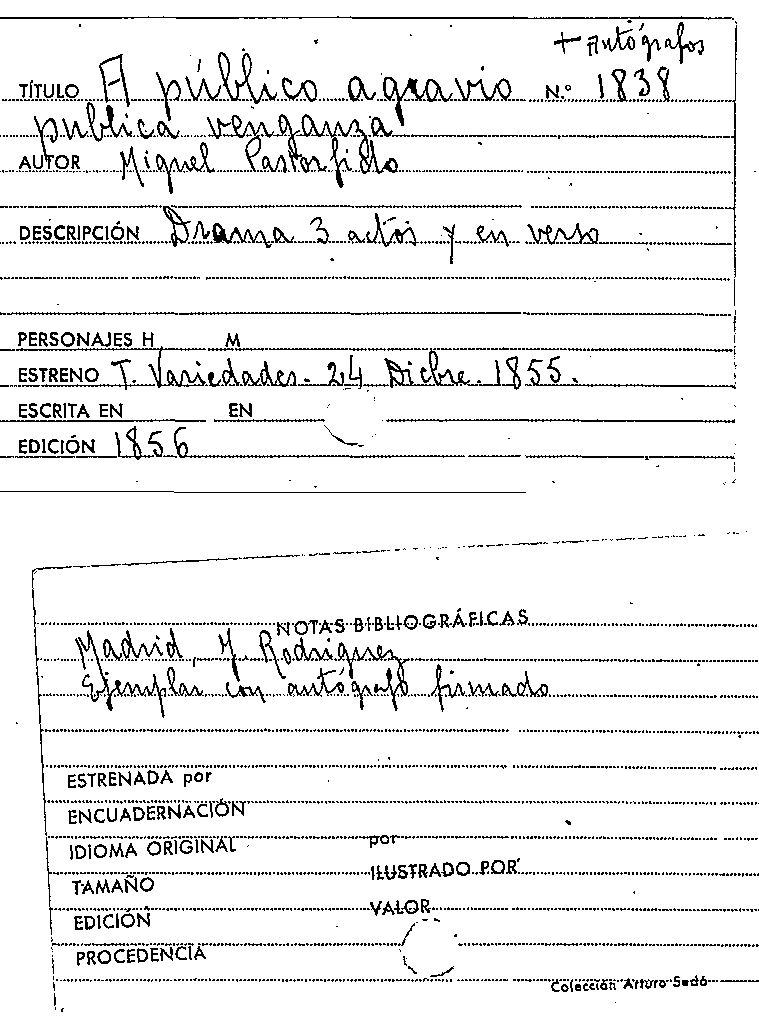 + Autógrafos
TÍTULO A público agravio N.º 1838
publica venganza
AUTOR Miguel Pastorfido
DESCRIPCIÓN Drama 3 actos y en verso
PERSONAJES H M
ESTRENO T. Variedades. 24 Dicbre. 1855.
ESCRITA EN EN
EDICIÓN 1856
NOTAS BIBLIOGRÁFICAS
Madrid, Rodriguez
Ejemplar con autógrafo firmado
ESTRENADA por
ENCUADERNACIÓN
IDIOMA ORIGINAL por
TAMAÑO ILUSTRADO POR
EDICIÓN VALOR
PROCEDENCIA
Colección Arturo Sedó